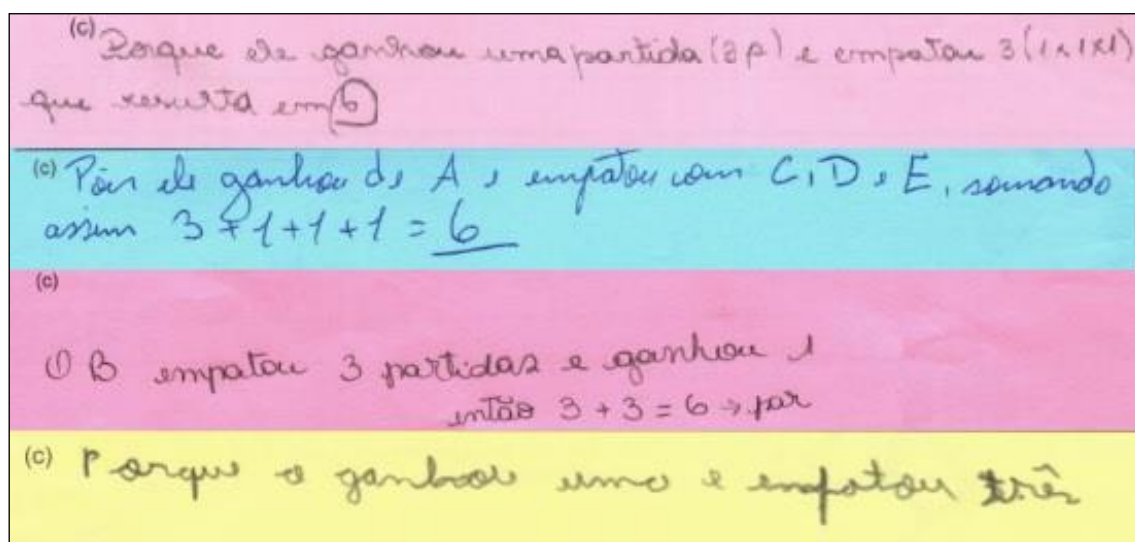 (c) Porque ele ganhou uma partida (3p) e empatou 3 (1x1x1)
que resulta em 6
(c) Pois ele ganhou de A e empatou com C, D e E, somando
assim 3+1+1+1 = 6
(c)
O B empatou 3 partidas e ganhou 1
então 3 + 3 = 6 → par
(c) Porque o ganhou uma e empatou três